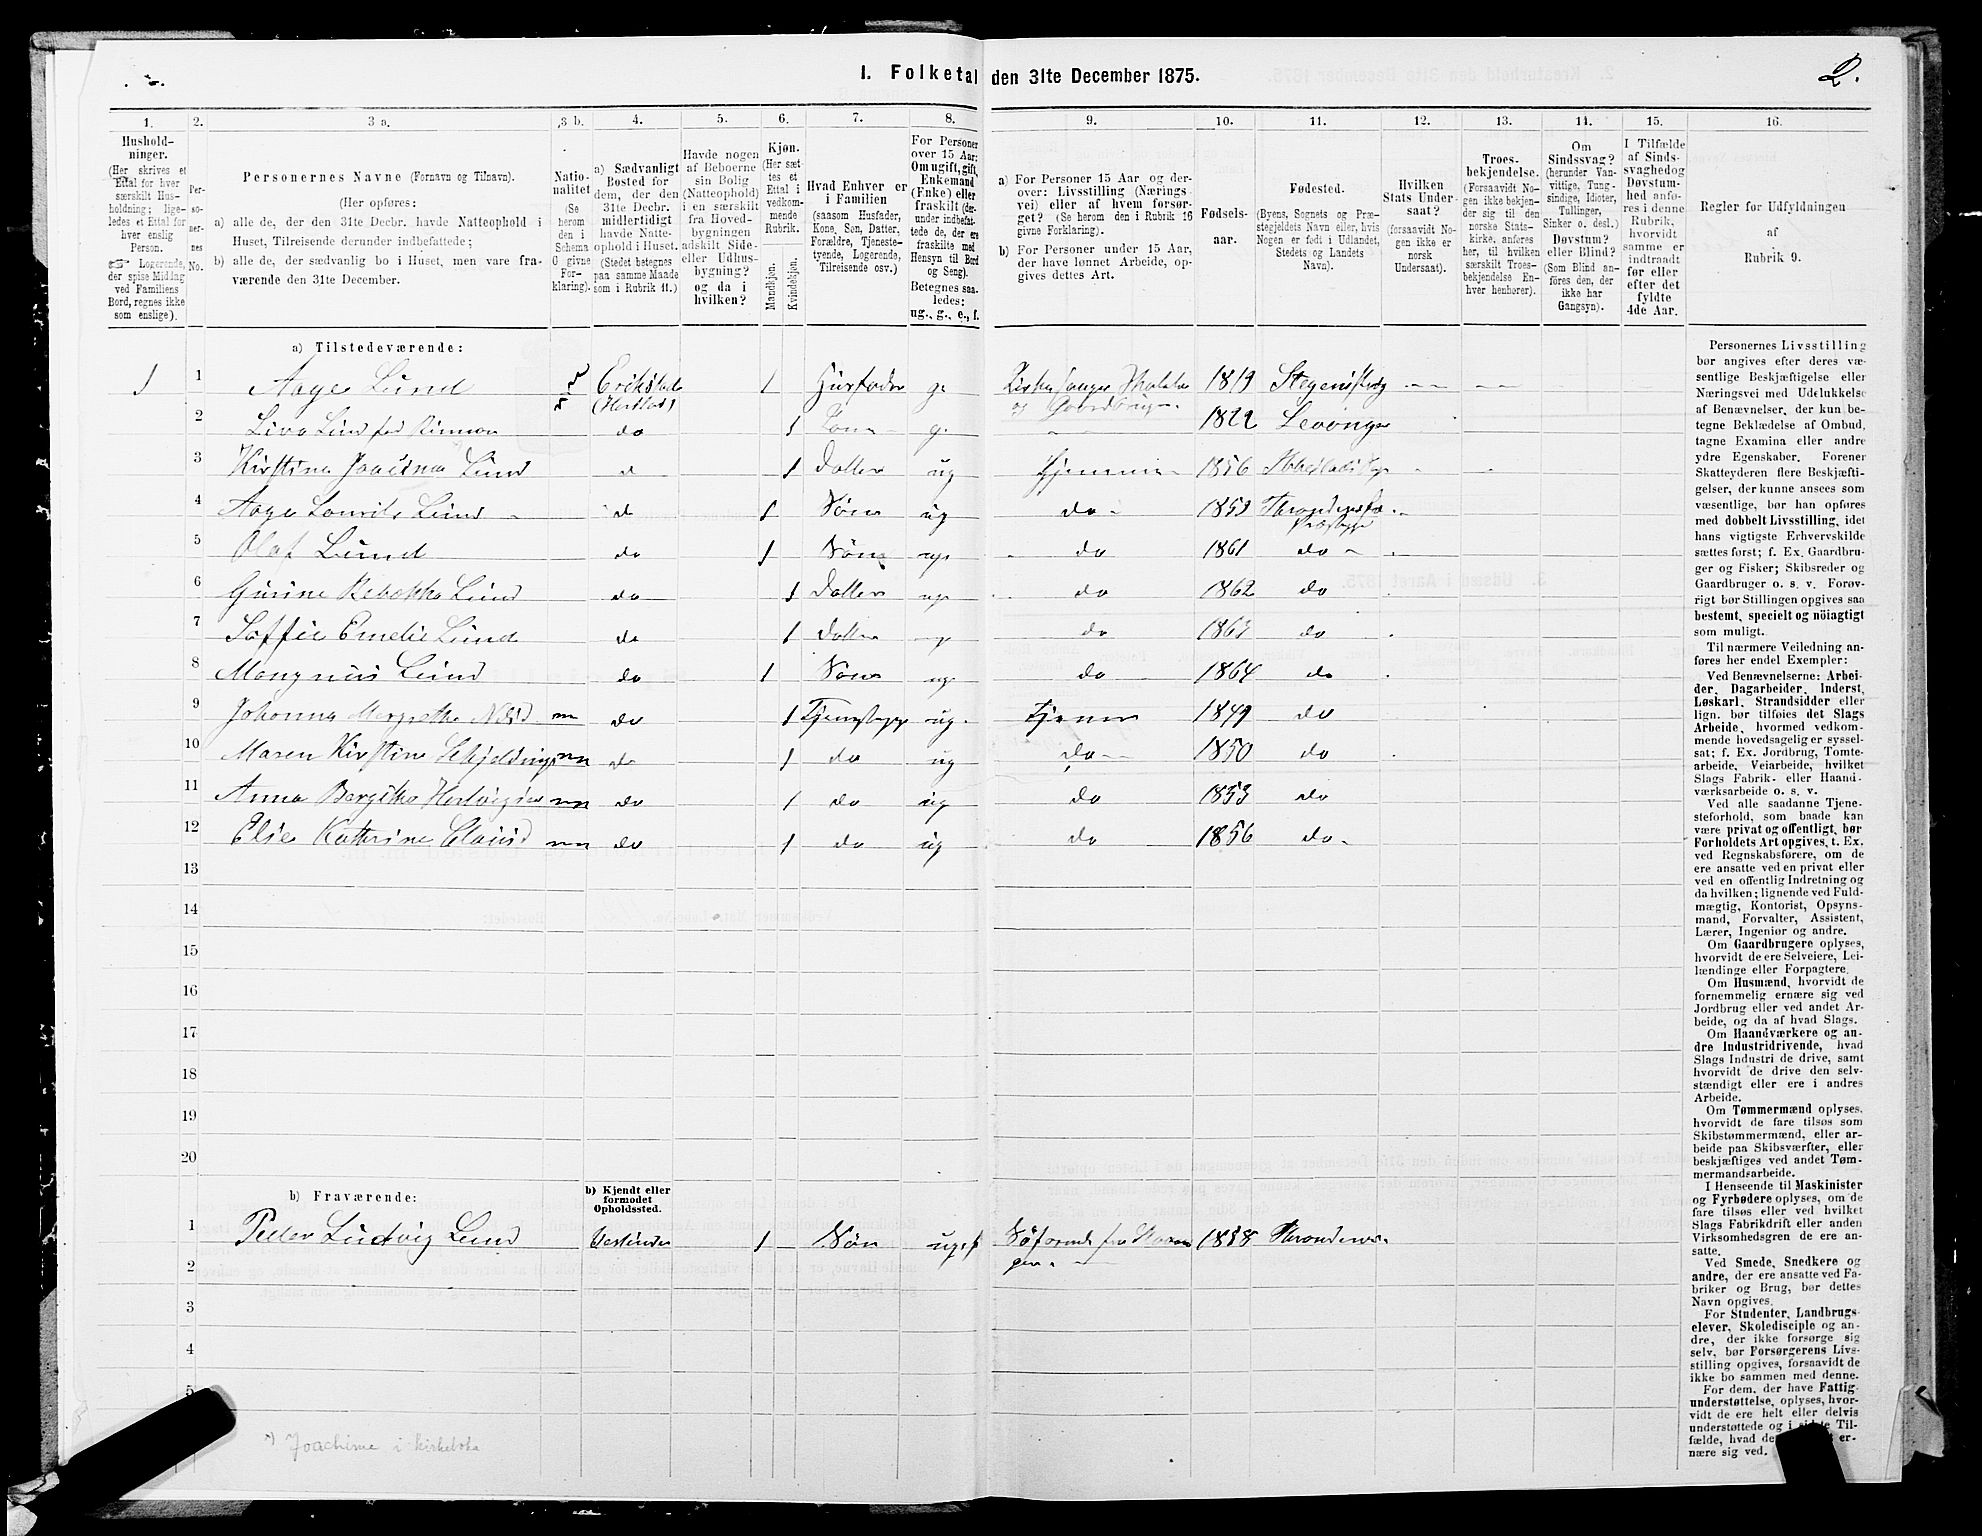 1. Folketal den 31te December 1875.
2.
1. 2. 3 a. 3 b. 4. 5. 6. 7. 8. 9. 10. 11. 12. 13. 14. 15. 16.
Hushold-
ninger.
(Her skrives et
Ettal for hver
særskilt Hus-
holdning; lige-
ledes et Ettal for
hver enslig
Person.
☞ Logerende,
der spise Middag
ved Familiens
Bord, regnes ikke
som enslige).
Per-
so-
ner-
nes
No.
Personernes Navne (Fornavn og Tilnavn).
(Her opføres:
a) alle de, der den 31te Decbr. havde Natteophold i
Huset, Tilreisende derunder indbefattede;
b) alle de, der sædvanlig bo i Huset, men vare fra-
værende den 31te December.
Natio-
nalitet
(Se
herom
den i
Schema
0 givne
For-
klaring).
a) Sædvanligt
Bosted for
dem, der den
31te Decbr.
midlertidigt
havde Natte-
ophold i Huset.
(Stedet betegnes
paa samme Maade
som i Rubrik 11.)
Havde nogen
af Beboerne
sin Bolig
(Natteophold)
i en særskilt
fra Hoved-
bygningen
adskilt Side-
eller Udhus-
bygning?
og da i
hvilken?
Kjøn.
(Her sæt-
tes et
Ettal i
vedkom-
mende
Rubrik.
Mandkjøn.
Kvindekjøn.
Hvad Enhver er
i Familien
(saasom Husfader,
Kone, Søn, Datter,
Forældre, Tjeneste-
tyende, Logerende,
Tilreisende osv.)
For Personer
over 15 Aar:
Om ugift, gift,
Enkemand
(Enke) eller
fraskilt (der-
under indbefat-
tede de, der ere
fraskilte med
Hensyn til Bord
og Seng).
Betegnes saa-
ledes:
ug., g., e., f.
a) For Personer 15 Aar og der-
over: Livsstilling (Nærings-
vei) eller af hvem forsør-
get? (Se herom den i Rubrik 16
givne Forklaring).
b) For Personer under 15 Aar,
der have lønnet Arbeide, op-
gives dettes Art.
Fødsels-
aar.
Fødested.
(Byens, Sognets og Præ-
stegjeldets Navn eller, hvis
Nogen er født i Udlandet,
Stedets og Landets
Navn).
Hvilken
Stats Under-
saat?
(forsaavidt No-
gen ikke er
norsk
Undersaat).
Troes-
bekjendelse.
(Forsaavidt No-
gen ikke bekjen-
der sig til den
norske Stats-
kirke, anføres
her, til hvilken
særskilt Troes-
bekjendelse En-
hver henhører).
Om
Sindssvag?
(herunder Van-
vittige, Tung-
sindige, Idioter,
Tullinger,
Sinker o. desl.)
Døvstum?
eller Blind?
(Som Blind an-
føres den, der
ikke har
Gangsyn).
I Tilfælde
af Sinds-
svaghed og
Døvstum-
hed anfø-
res i denne
Rubrik,
hvorvidt
samme er
indtraadt
før eller
efter det
fyldte
4de Aar.
Regler for Udfyldningen
af
Rubrik 9.
a) Tilstedeværende:
1 1 Aage Lund 1 g. 1819
og Gaardbruger
2 Lund do 1 Kone g. 1822 Levanger
3 Kirstina Lund 1 Datter ug 1856
4 Aage Lund 1 Søn ug do 1859
5 Olaf Lund do 1 Søn ug. do 1861 do
6 Gurine Rebekka Lund do 1 Datter ug. do 1862 do
7 Soffie Emelie Lund do 1 Datter ug do 1863 do
8 Mangnus Lund do 1 Søn ug. do 1864 do
9 Johanna Margrethe do 1 ug. Tjener 1849 do
10 Maren Kirstine do 1 do ug do 1850 do
11 Anna Bergitha do 1 do ug do 1853 do
12 Elise Kathrine do 1 do ug do 1856 do
13
14
15
16
17
18
19
20
b) Fraværende:
b) Kjendt eller
formodet
Opholdssted.
1 Peder Ludvig Lund 1 Søn ugift 1858 Throndenes
2
3
4
5
*) Joachime i kirkeboka
Personernes Livsstilling
bør angives efter deres væ-
sentlige Beskjæftigelse eller
Næringsvei med Udelukkelse
af Benævnelser, der kun be-
tegne Beklædelse af Ombud,
tagne Examina eller andre
ydre Egenskaber. Forener
Skatteyderen flere Beskjæfti-
gelser, der kunne ansees som
væsentlige, bør han opføres
med dobbelt Livsstilling, idet
hans vigtigste Erhvervskilde
sættes først; f. Ex. Gaardbru-
ger og Fisker; Skibsreder og
Gaardbruger o. s. v. Forøv-
rigt bør Stillingen opgives saa
bestemt, specielt og nöiagtigt
som muligt.
Til nærmere Veiledning an-
føres her endel Exempler:
Ved Benævnelserne: Arbei-
der, Dagarbeider, Inderst,
Løskarl, Strandsidder eller
lign. bør tilføies det Slags
Arbeide, hvormed vedkom-
mende hovedsagelig er syssel-
sat; f. Ex. Jordbrug, Tomte-
arbeide, Veiarbeide, hvilket
Slags Fabrik- eller Haand-
værksarbeide o. s. v.
Ved alle saadanne Tjene-
steforhold, som baade kan
være privat og offentligt, bør
Forholdets Art opgives, t. Ex.
ved Regnskabsførere, om de
ere ansatte ved en privat eller
ved en offentlig Indretning og
da hvilken; lignende ved Fuld-
mægtig, Kontorist, Opsyns-
mand, Forvalter, Assistent,
Lærer, Ingeniør og andre.
Om Gaardbrugere oplyses,
hvorvidt de ere Selveiere, Lei-
lændinge eller Forpagtere.
Om Husmænd, hvorvidt de
fornemmelig ernære sig ved
Jordbrug eller ved andet Ar-
beide, og da af hvad Slags.
Om Haandværkere og an-
dre Industridrivende, hvad
Slags Industri de drive, samt
hvorvidt de drive den selv-
stændigt eller ere i andres
Arbeide.
Om Tømmermænd oplyses,
hvorvidt de fare tilsøs som
Skibstømmermænd, eller ar-
beide paa Skibsværfter, eller
beskjæftiges ved andet Tøm-
mermandsarbeide.
I Henseende til Maskinister
og Fyrbødere oplyses, om de
fare tilsøs eller ved hvilket
Slags Fabrikdrift eller anden
Virksomhedsgren de ere an-
satte.
Ved Smede, Snedkere og
andre, der ere ansatte ved Fa-
briker og Brug, bør dettes
Navn opgives.
For Studenter, Landbrugs-
elever, Skoledisciple og an-
dre, der ikke forsørge sig
selv, bør Forsørgerens Livs-
stilling opgives, forsaavidt de
ikke bo sammen med denne.
For dem, der have Fattig-
understøttelse, oplyses, hvor-
vidt de ere helt eller delvis
understøttede og i sidste Til-
fælde, hvad de er-
nære sig ved.